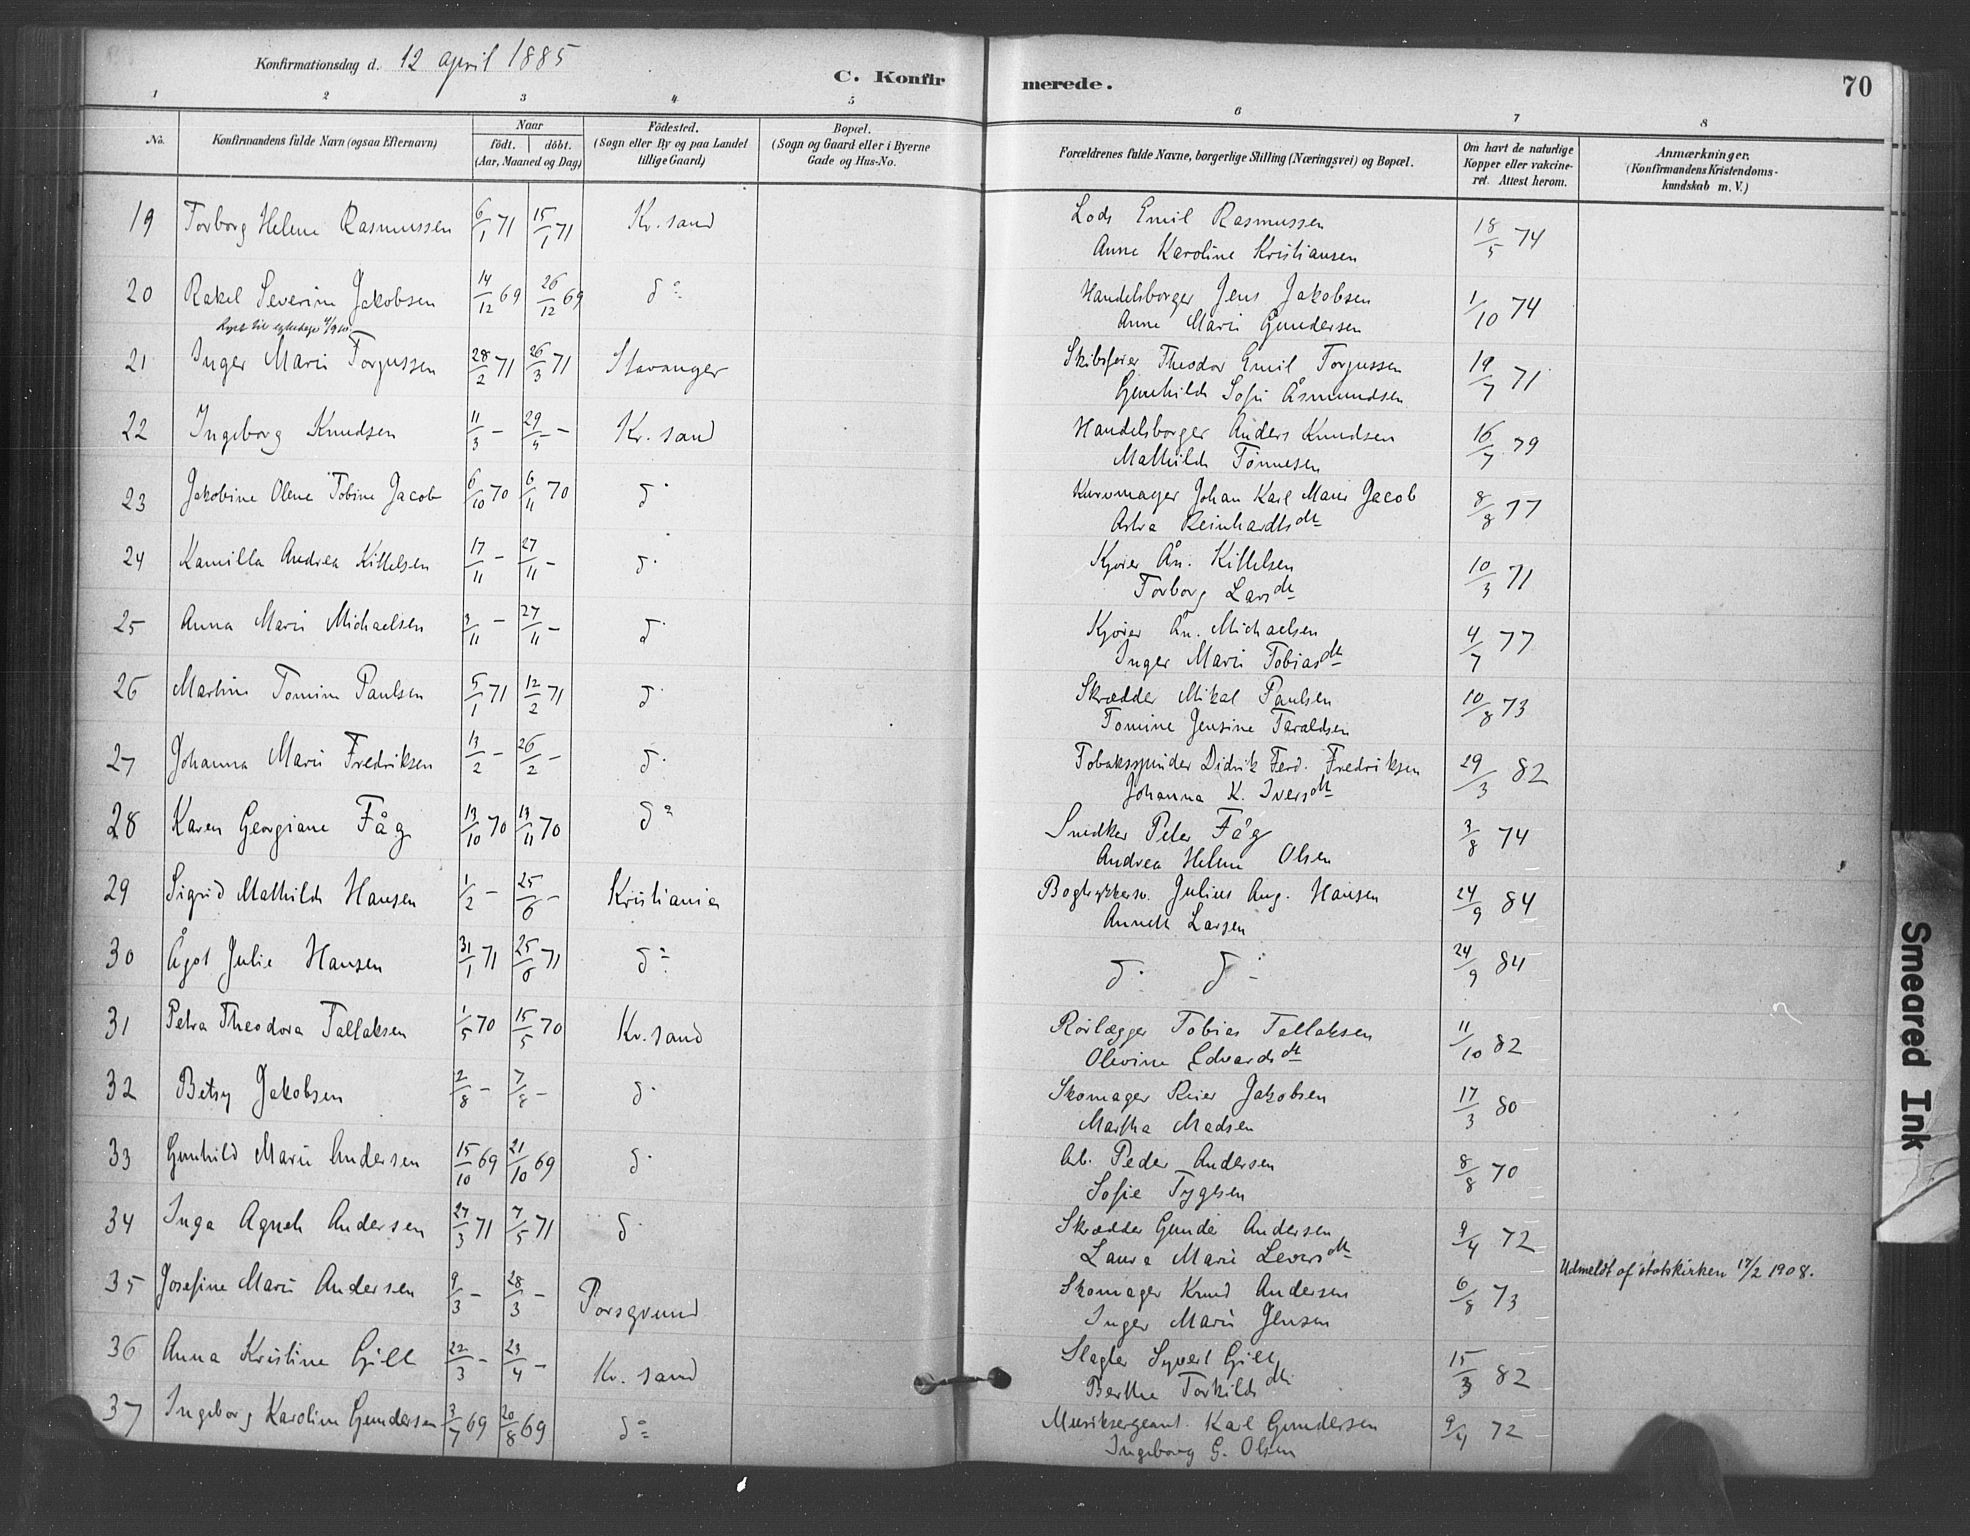 Konfirmationsdag d. 12 april 1885
C. Konfirmerede.
70
1 2 3 4 5 6 7 8
No.
Konfirmandens fulde Navn (ogsaa Efternavn)
Naar
födt. | döbt.
(Aar, Maaned og Dag)
Födested.
(Sogn eller By og paa Landet
tillige Gaard)
Bopæl.
(Sogn og Gaard eller i Byerne
Gade og Hus-No.
Forældrenes fulde Navne, borgerlige Stilling (Næringsvei) og Bopæl.
Om havt de naturlige
Kopper eller vakcine-
ret. Attest herom.
Anmærkninger.
(Konfirmandens Kristendoms-
kundskab m. V.)
19 Torborg Helene Rasmussen 6/1 71 15/1 71 Kr. sand Lods Emil Rasmussen 18/5 74
Anne Karoline Kristiansen
20 Rakel Severine Jakobsen 14/12 69 26/12 69 do Handelsborger Jens Jakobsen 1/10 74
Anne Marie Gundersen
21 Inger Marie Torgussen 28/2 71 26/3 71 Stavanger Skibsfører Theodor Emil Torgussen 19/7 71
Gunhild Sofie Åsmundsen
22 Ingeborg Knudsen 11/3 - 29/5 - Kr. sand Handelsborger Anders Knudsen 16/7 79
Mathilde Tönnesen
23 Jakobine Olene Tobine Jacob 6/10 70 6/11 70 do Kurvmager Johan Karl Jacob 8/8 77
Reinhardtsdtr
24 Kamilla Andrea Kittelsen 17/11 - 27/11 - do Kjörer An. Kittelsen 10/3 71
Torborg Larsdtr
25 Anna Marie Michaelsen 3/11 - 27/11 - do Kjörer An. Michaelsen 4/7 77
Inger Marie Tobiasdtr
26 Martine Tomine Paulsen 5/1 71 12/2 71 do Skrædder Mikal Paulsen 10/8 73
Tomine Jensine Taraldsen
27 Johanna Marie Fredriksen 13/2 - 26/2 - do Tobaksspinder Didrik Ferd. Fredriksen 29/3 82
Johanna K. Iversdtr
28 Karen Georgiane Fåg 13/10 70 13/11 70 do Snedker Peter Fåg 3/8 74
Andrea Helene Olsen
29 Sigrid Mathilde Hansen 1/2 - 25/6 - Kristiania Bogtrykkersv. Julius Aug. Hansen 24/9 84
Annette Larsen
30 Ågot Julie Hansen 31/1 71 25/6 71 do do do 24/9 84
31 Petra Theodora Tallaksen 1/5 70 15/5 70 Kr. sand Rörlægger Tobias Tallaksen 11/10 82
Olevine Edvardsdtr
32 Betsy Jakobsen 2/8 - 7/8 - do Skomager Reier Jakobsen 17/3 80
Martha Madsen
33 Gunhild Marie Andersen 15/10 69 21/10 69 do Arb. Peder Andersen 8/8 70
Sofie Tygesen
34 Inga Agnete Andersen 27/3 71 7/5 71 do Skrædder Gunde Andersen 9/4 72
Laura Marie Leversdtr
35 Josefine Marie Andersen 9/3 - 28/3 - Porsgrund Skomager Knud Andersen 6/8 73 Udmeldt af statskirken 17/2 1908.
Inger Marie Jensen
36 Anna Kristine Gill 22/3 - 23/4 - Kr. sand Slagter Syvert Gill 15/3 82
Berthe Torkildsdtr
37 Ingeborg Karoline Gundersen 3/7 69 20/8 69 do Musiksergeant. Karl Gundersen 9/4 72
Ingeborg G. Olsen
Smeared Ink